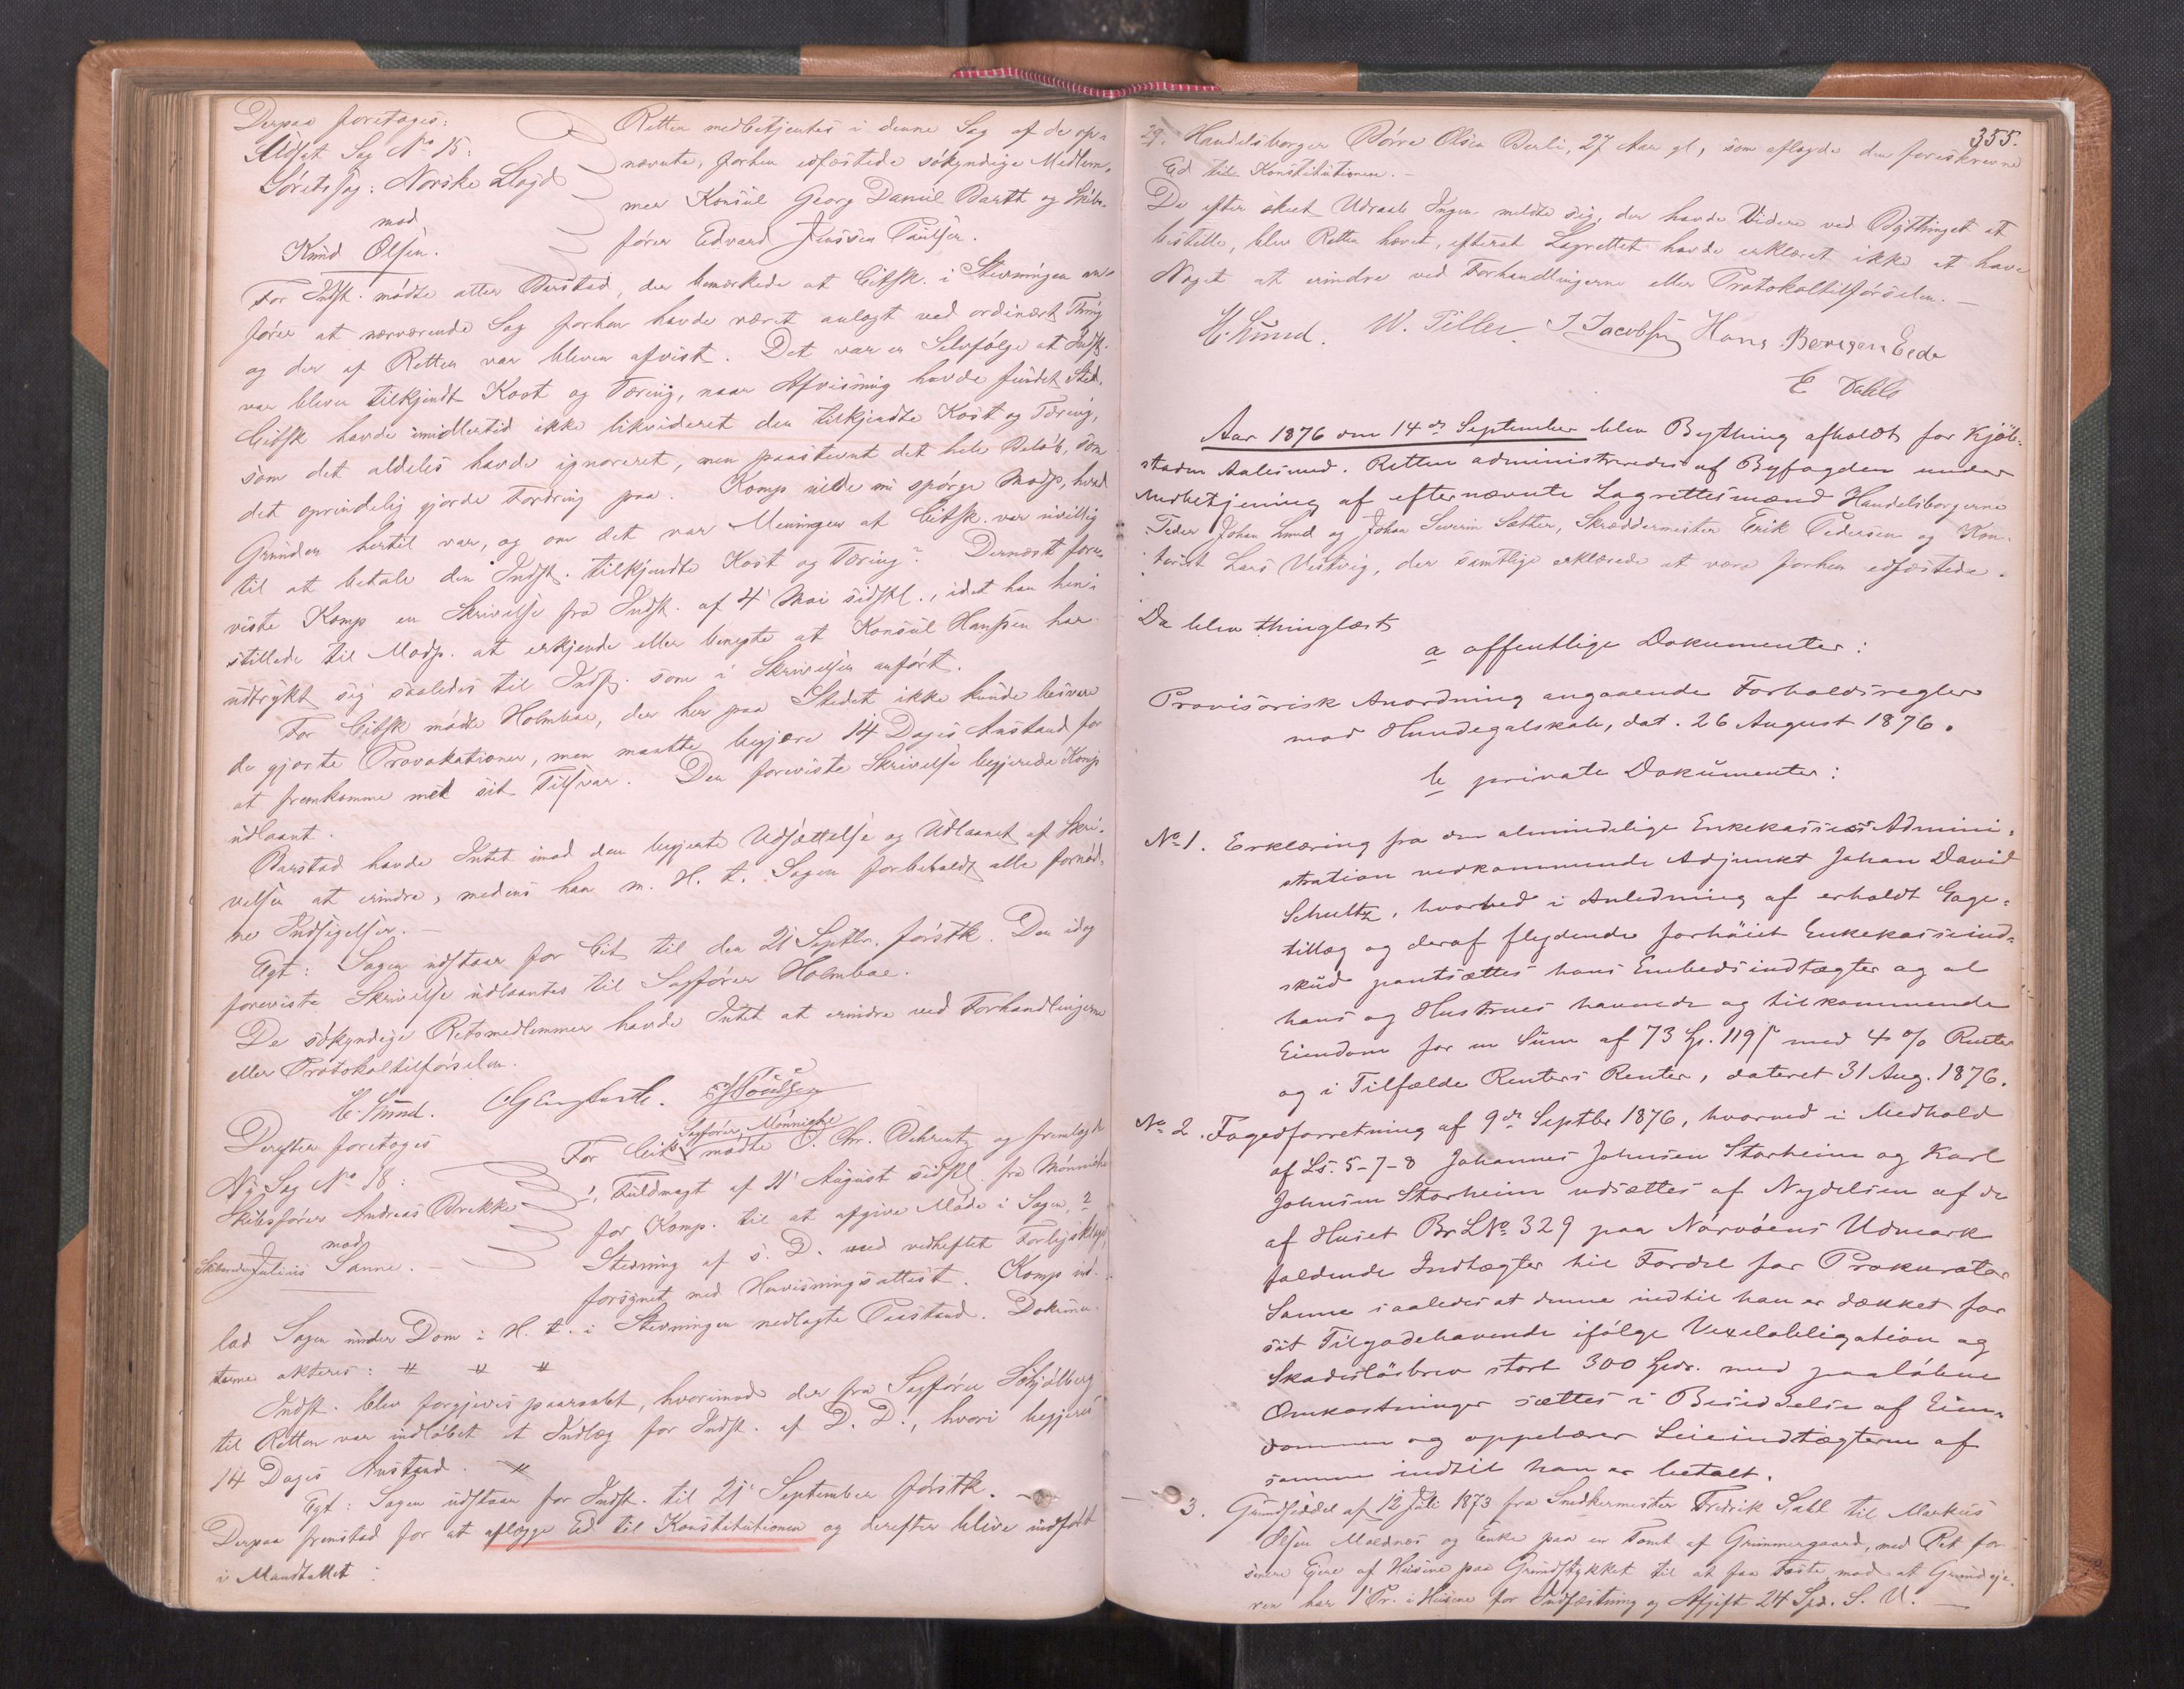 Derpaa foretoges:
Udsat Sag No 15:
Søretssag: Norske Lloyd
mod
Knud Olsen.
Retten medbetjentes i denne Sag af de op-
nævnte, forhen edfæstede søkyndige Medlem-
mer Konsul Georg Daniel Barth og Skibs-
fører Edvard Jenssen Poulsen.
For Indst. mødte atter Barstad, der bemærkede at Citsk. i Stevningen an-
fører at nærværende Sag forhen havde været anlagt ved ordinært Thing
og der af Retten var bleven afvist. Det var en Selvfølge at Indst.
var bleven tilkjendt Kost og Tæring, naar Afvisning havde fundet Sted.
Citsk havde imidlertid ikke likvideret den tilkjendte Kost og Tæring,
som det aldeles havde ignoreret, men paastevnt det hele Beløb, som
det oprindelig gjorde Fordring paa. Komp vilde nu spørge Modp, hvad
Grunden hertil var, og om det var Meningen at Citsk. var uvillig
til at betale den Indst. tilkjendte Kost og Tæring? Dernæst fore-
viste Komp en Skrivelse fra Indst. af 4' Mai sidstl., idet han hen-
stillede til Modp. at erkjende eller benegte at Konsul Hanssen har
udtrykt sig saaledes til Indst. som i Skrivelsen anført.
For Citsk mødte Holmboe, der her paa Stedet ikke kunde besvare
de gjorte Provokationer, men maatte begjære 14 Dages Anstand for
at fremkomme med sit Tilsvar. Den foreviste Skrivelse begjerede Komp
udlaant.
Barstad havde Intet imod den begjerte Udsættelse og Udlaanet af Skri-
velsen at erindre, medens han m. H. t. Sagen forbeholdt alle fornød-
ne Indsigelser. —
Egt: Sagen udstaar for Cit til den 21 Septbr. førstk. Den idag
foreviste Skrivelse udlaantes til Sagfører Holmboe.
De søkyndige Retsmedlemmer havde Intet at erindre ved Forhandlingerne
eller Protokoltilførselen.
H. Lund. EJPoulsen
Derefter foretoges
Ny Sag No 18:
Skibsfører Andreas Brekke
mod
Skibsreder Julius Sanne. —
For Cits Sagfører Mønniche mødte O. Chr. Behrentz og fremlagde
1, Fuldmagt af 21' August sidstl. fra Mønniche
for Komp. til at afgive Møde i Sagen, 2
Stevning af s. D. med vedheftet Forligsklage,
forsynet med Henvisningsattest. Komp ind-
lod Sagen under Dom i H. t. i Stevningen nedlagte Paastand. Dokumen-
terne akteres: // // //
Indst. blev forgjeves paaraabt, hvorimod der fra Sagfører Schjølberg
til Retten var indløbet et Indlæg for Indst. af D. D., hvori begjeres
14 Dages Anstand. //
Egt: Sagen udstaar for Indst. til 21' September førstk. —
Derpaa fremstod for at aflægge Ed til Konstitutionen og derefter blive indført
i Mandtallet:
355.
29. Handelsborger Børre Olsen Berli, 27 Aar gl, som aflagde den foreskrevne
Ed til Konstitutionen. —
Da efter skeet Udraab Ingen meldte sig, der havde Videre ved Bythinget at
bestille, blev Retten hævet, efterat Lagrettet havde erklæret ikke at have
Noget at erindre ved Forhandlingerne eller Protokoltilførselen. —
H. Lund. W. Tiller J. Jacobsen Hans Eede
E Dahls
Aar 1876 den 14de September blev Bything afholdt for Kjøb-
staden Aalesund. Retten administreredes af Byfogden under
Medbetjening af efternævnte Lagrettesmænd Handelsborgerne
Peder Johan Lund og Johan Severin Sæther, Skræddermester Erik Pedersen og Kon-
torist Lars Vestvig, der samtlige erklærede at være forhen edfæstede.
Da blev thinglæst
a offentlige Dokumenter:
Provisorisk Anordning angaaende Forholdsregler
mod Hundegalskab, dat. 26 August 1876.
b private Dokumenter:
No 1. Erklæring fra den almindelige Enkekasses Admini-
stration vedkommende Adjunkt Johan David
Schultz, hvorved i Anledning af erholdt Gage-
tillæg og deraf flydende forhøiet Enkekasseind-
skud pantsættes hans Embedsindtægter og al
hans og Hustrues havende og tilkommende
Eiendom for en Sum af 73 Sp. 119 s med 4 % Renter
og i Tilfælde Renters Renter, dateret 31 Aug. 1876.
No 2. Fogedforretning af 9de Septbr 1876, hvorved i Medhold
af Ls. 5-7-8 Johannes Johnsen Storheim og Karl
Johnsen Storheim udsættes af Nydelsen af de
af Huset Br. L No. 329 paa Nørvøens Udmark
faldende Indtægter til Fordel for Prokurator
Sanne saaledes at denne indtil han er dækket for
sit Tilgodehavende ifølge Vexelobligation og
Skadesløsbrev stort 300 Spdr. med paaløbne
Omkostninger sættes i Besiddelse af Eien-
dommen og oppebærer Leieindtægterne af
samme indtil han er betalt.
3. Grundseddel af 12 Juli 1873 fra Snedkermester Fredrik Stahl til Markus
Olsen Moldnes og Enke paa en Tomt af Grimmergaard, med Ret for
senere Eiere af Husene paa Grundstykket til at faa Fæste mod at Grundeje-
ren har 1' Pr. i Husene for Indfæstning og Afgift 24 Spd. S. U. —